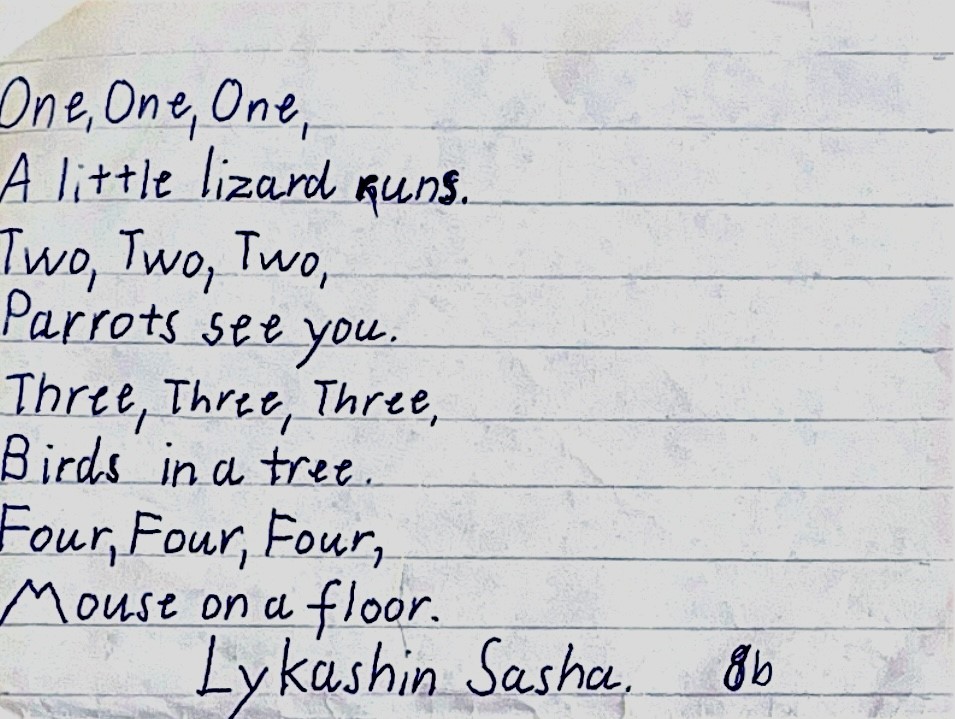 One, One, One,
A little lizard runs.
Two, Two, Two,
Parrots see you.
Three, Three, Three,
Birds in a tree.
Four, Four, Four,
Mouse on a floor.
Lykashin Sasha. 8b